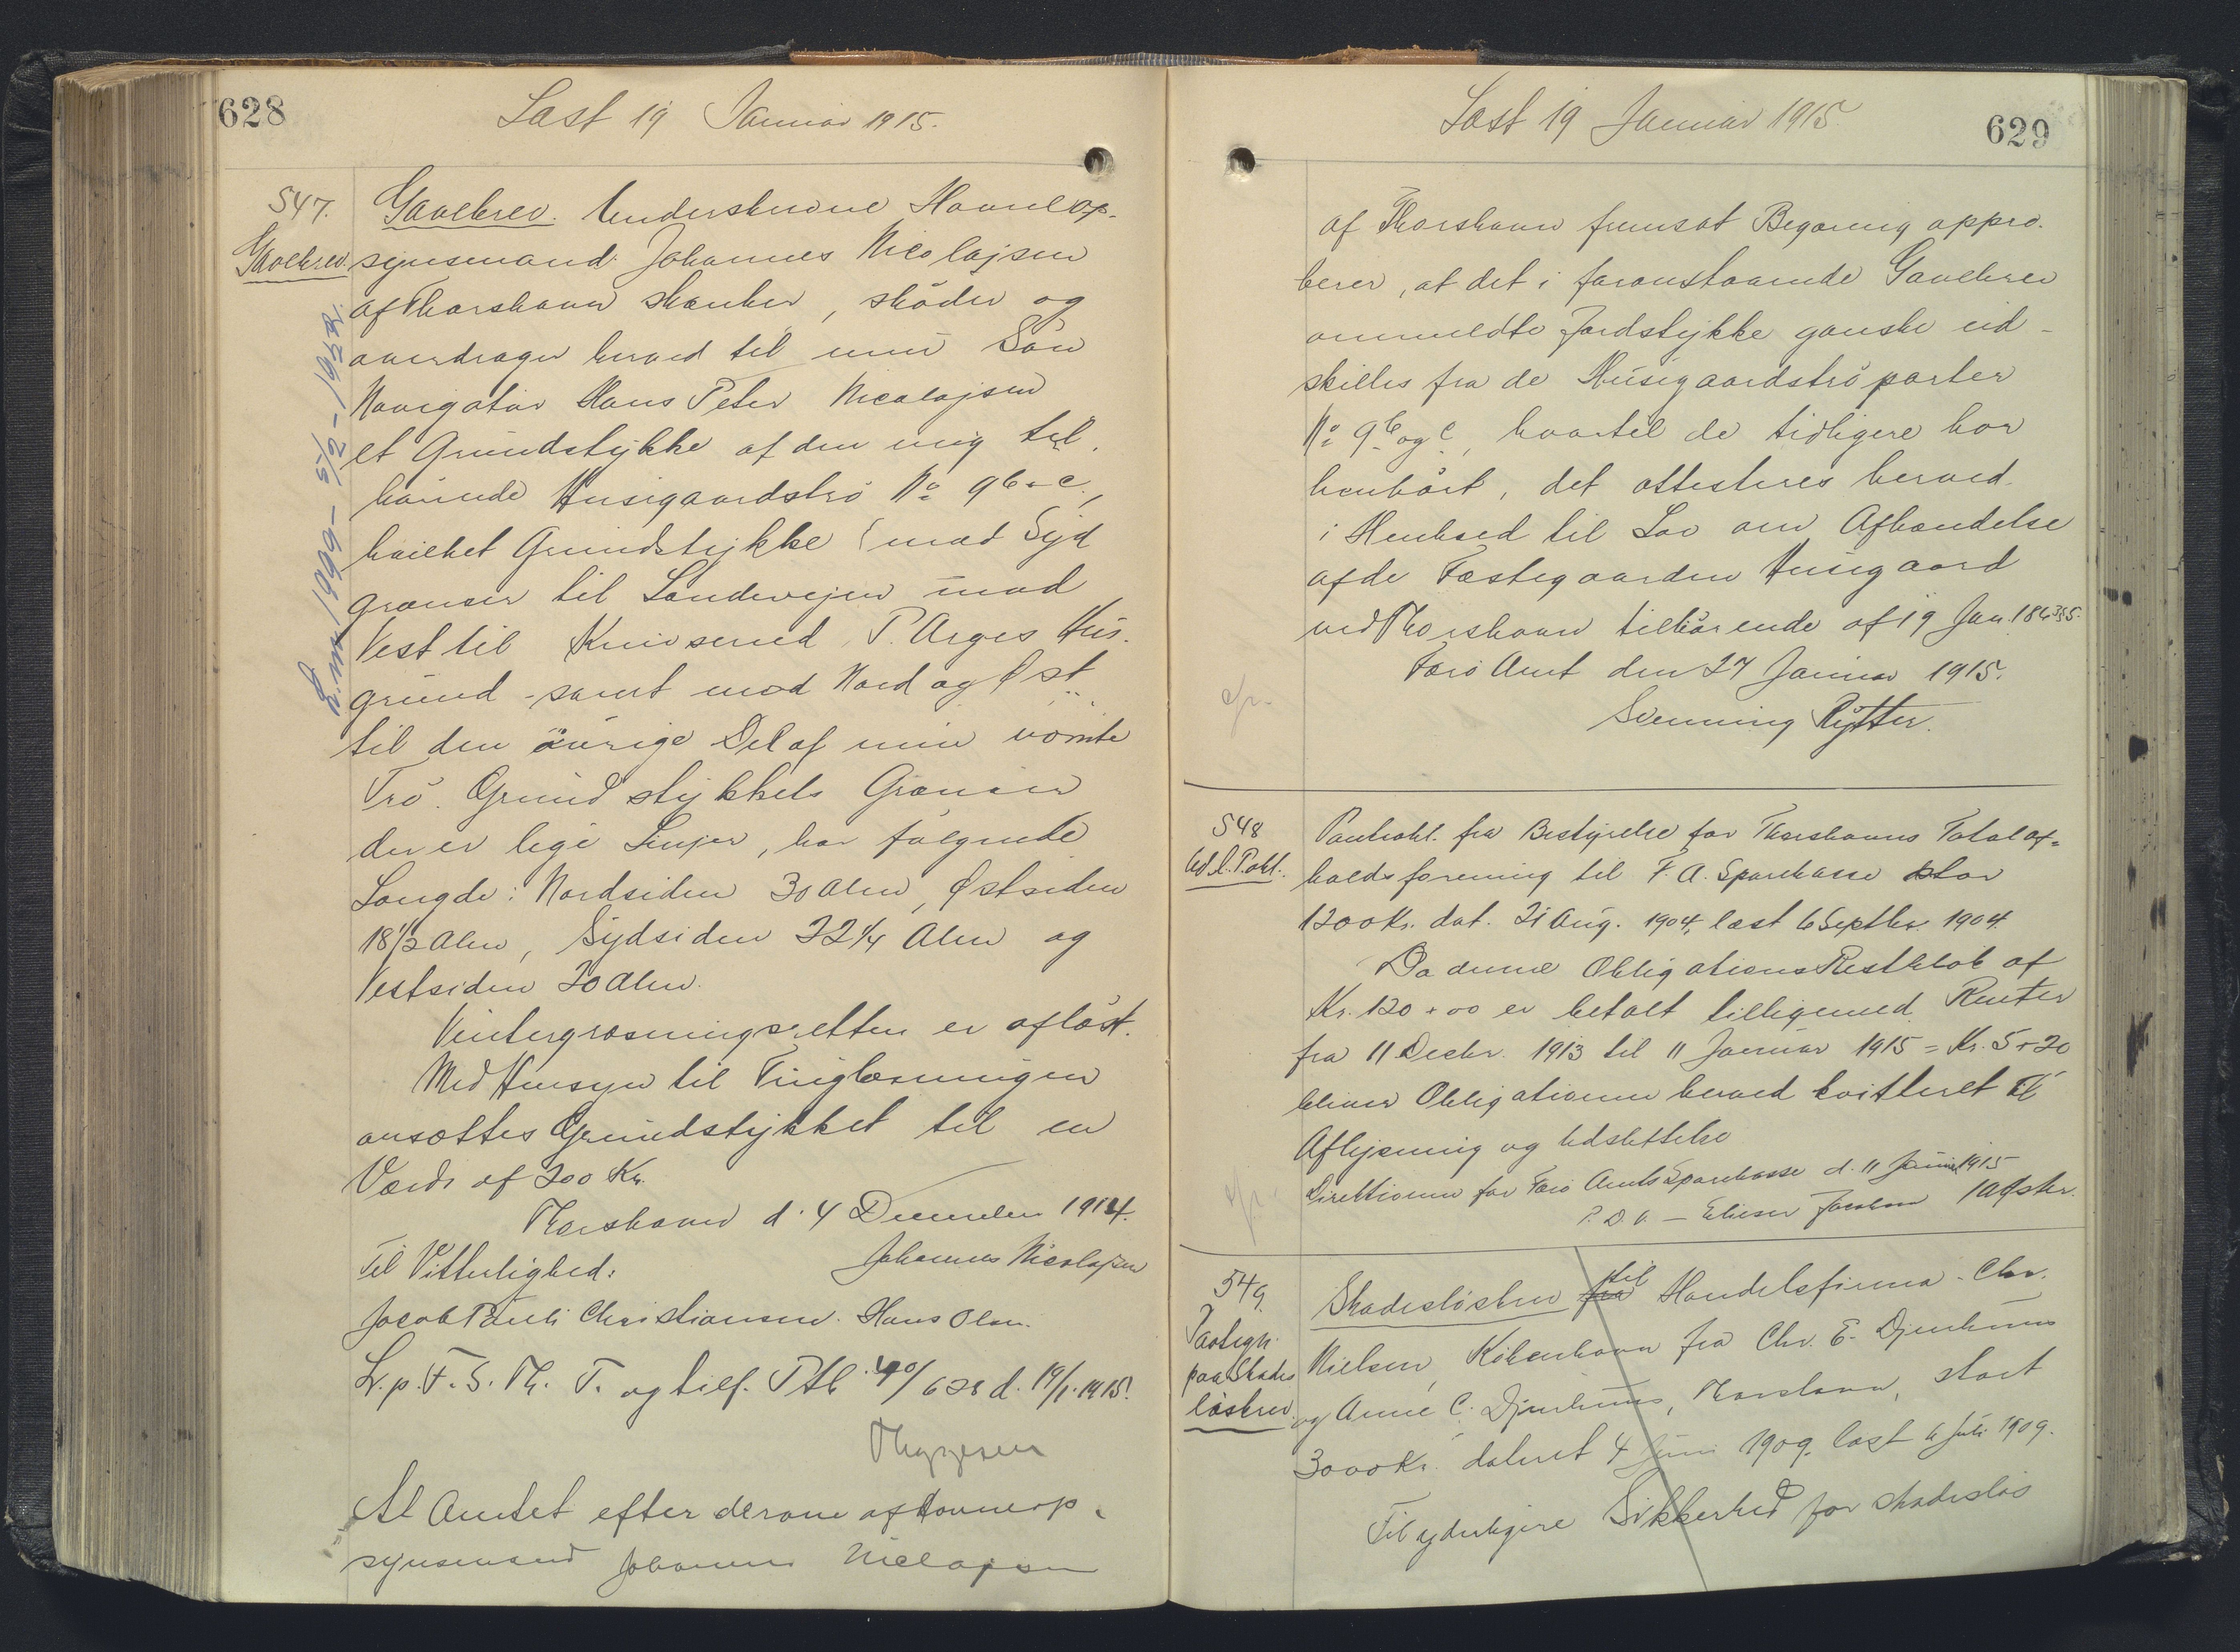 628
Læst 19 Januar 1915.
547.
Gavebrev.
L.nr. 1999 - 5/2 - 1952.
Gavebrev. Underskrevne Havneop-
synsmand Johannes Nicolajsen
af Thorshavn skænker, skøder og
overdrager herved til min Søn
Navigatør Hans Peter Nicolajsen
et Grundstykke af den mig til-
hørende Husigaardstrø No 9 b & c,
hvilket Grundstykke mod Syd
grænser til Landevejen mod
Vest til P. Arges Hus-
grund - samt mod Nord og Øst
til den øvrige Del af min nævnte
Trø. Grundstykkets Grænser
der er lige Linjer, har følgende
Længde: Nordsiden 30 Alen, Østsiden
18 1/2 Alen, Sydsiden 22 1/4 Alen og
Vestsiden 20 Alen.
Vintergræsningsretten er afløst.
Med Hensyn til Tinglæsningen
ansættes Grundstykket til en
Værdi af 200 Kr.
Thorshavn d. 4 December 1914.
Til Vitterlighed: Johannes Nicolajsen
Jacob Pauli Christiansen. Hans Olsen.
L. p. F. S. Th. T. og tilf. Ptb. 628 d. 19/1. 1915.
Thygesen
At Amtet efter derom af Havneop-
synsmand Johannes Nicolajsen
Læst 19 Januar 1915.
629
af Thorshavn fremsat Begæring appro-
berer, at det i foranstaaende Gavebrev
ommeldte Jordstykke ganske ud-
skilles fra de Husigaardstrøparter
No 9 b og c, hvortil de tidligere har
henhørt, det attesteres herved
i Henhold til Lov om Afhændelse
af de Fæstegaarden Husigaard
ved Thorshavn tilhørende af 19 Jan.
Færø Amt den 27 Januar 1915.
Svenning Rytter.
548
Udsl. Pobl.
Pantobl. fra Bestyrelse for Thorshavns Totalaf-
holdsforening til F. A. Sparekasse stor
1200 Kr. dat. 21 Aug. 1904, læst 6 Septbr. 1904.
Da denne Obligations Restbeløb af
Kr. 120 + 00 er betalt tilligemed Renter
fra 11 Decbr. 1913 til 11 Januar 1915 = Kr. 5 + 20
bliver Obligationen herved kvitteret til
Aflysning og Udslettelse
Direktionen for Færø Amts Sparekasse d. 11 Januar 1915
P. D. V. - Elieser Jacobsen
549.
paa Skades
løsbrev.
Skadesløsbrev fra til Handelsfirma Chr.
Nielsen, København fra Chr. E. Djurhuus
og Anne C. Djurhuus, Thorshavn, stort
3000 Kr. dateret 4 Juni 1909. læst 6 Juli 1909.
Til yderligere Sikkerhed for skadesløs